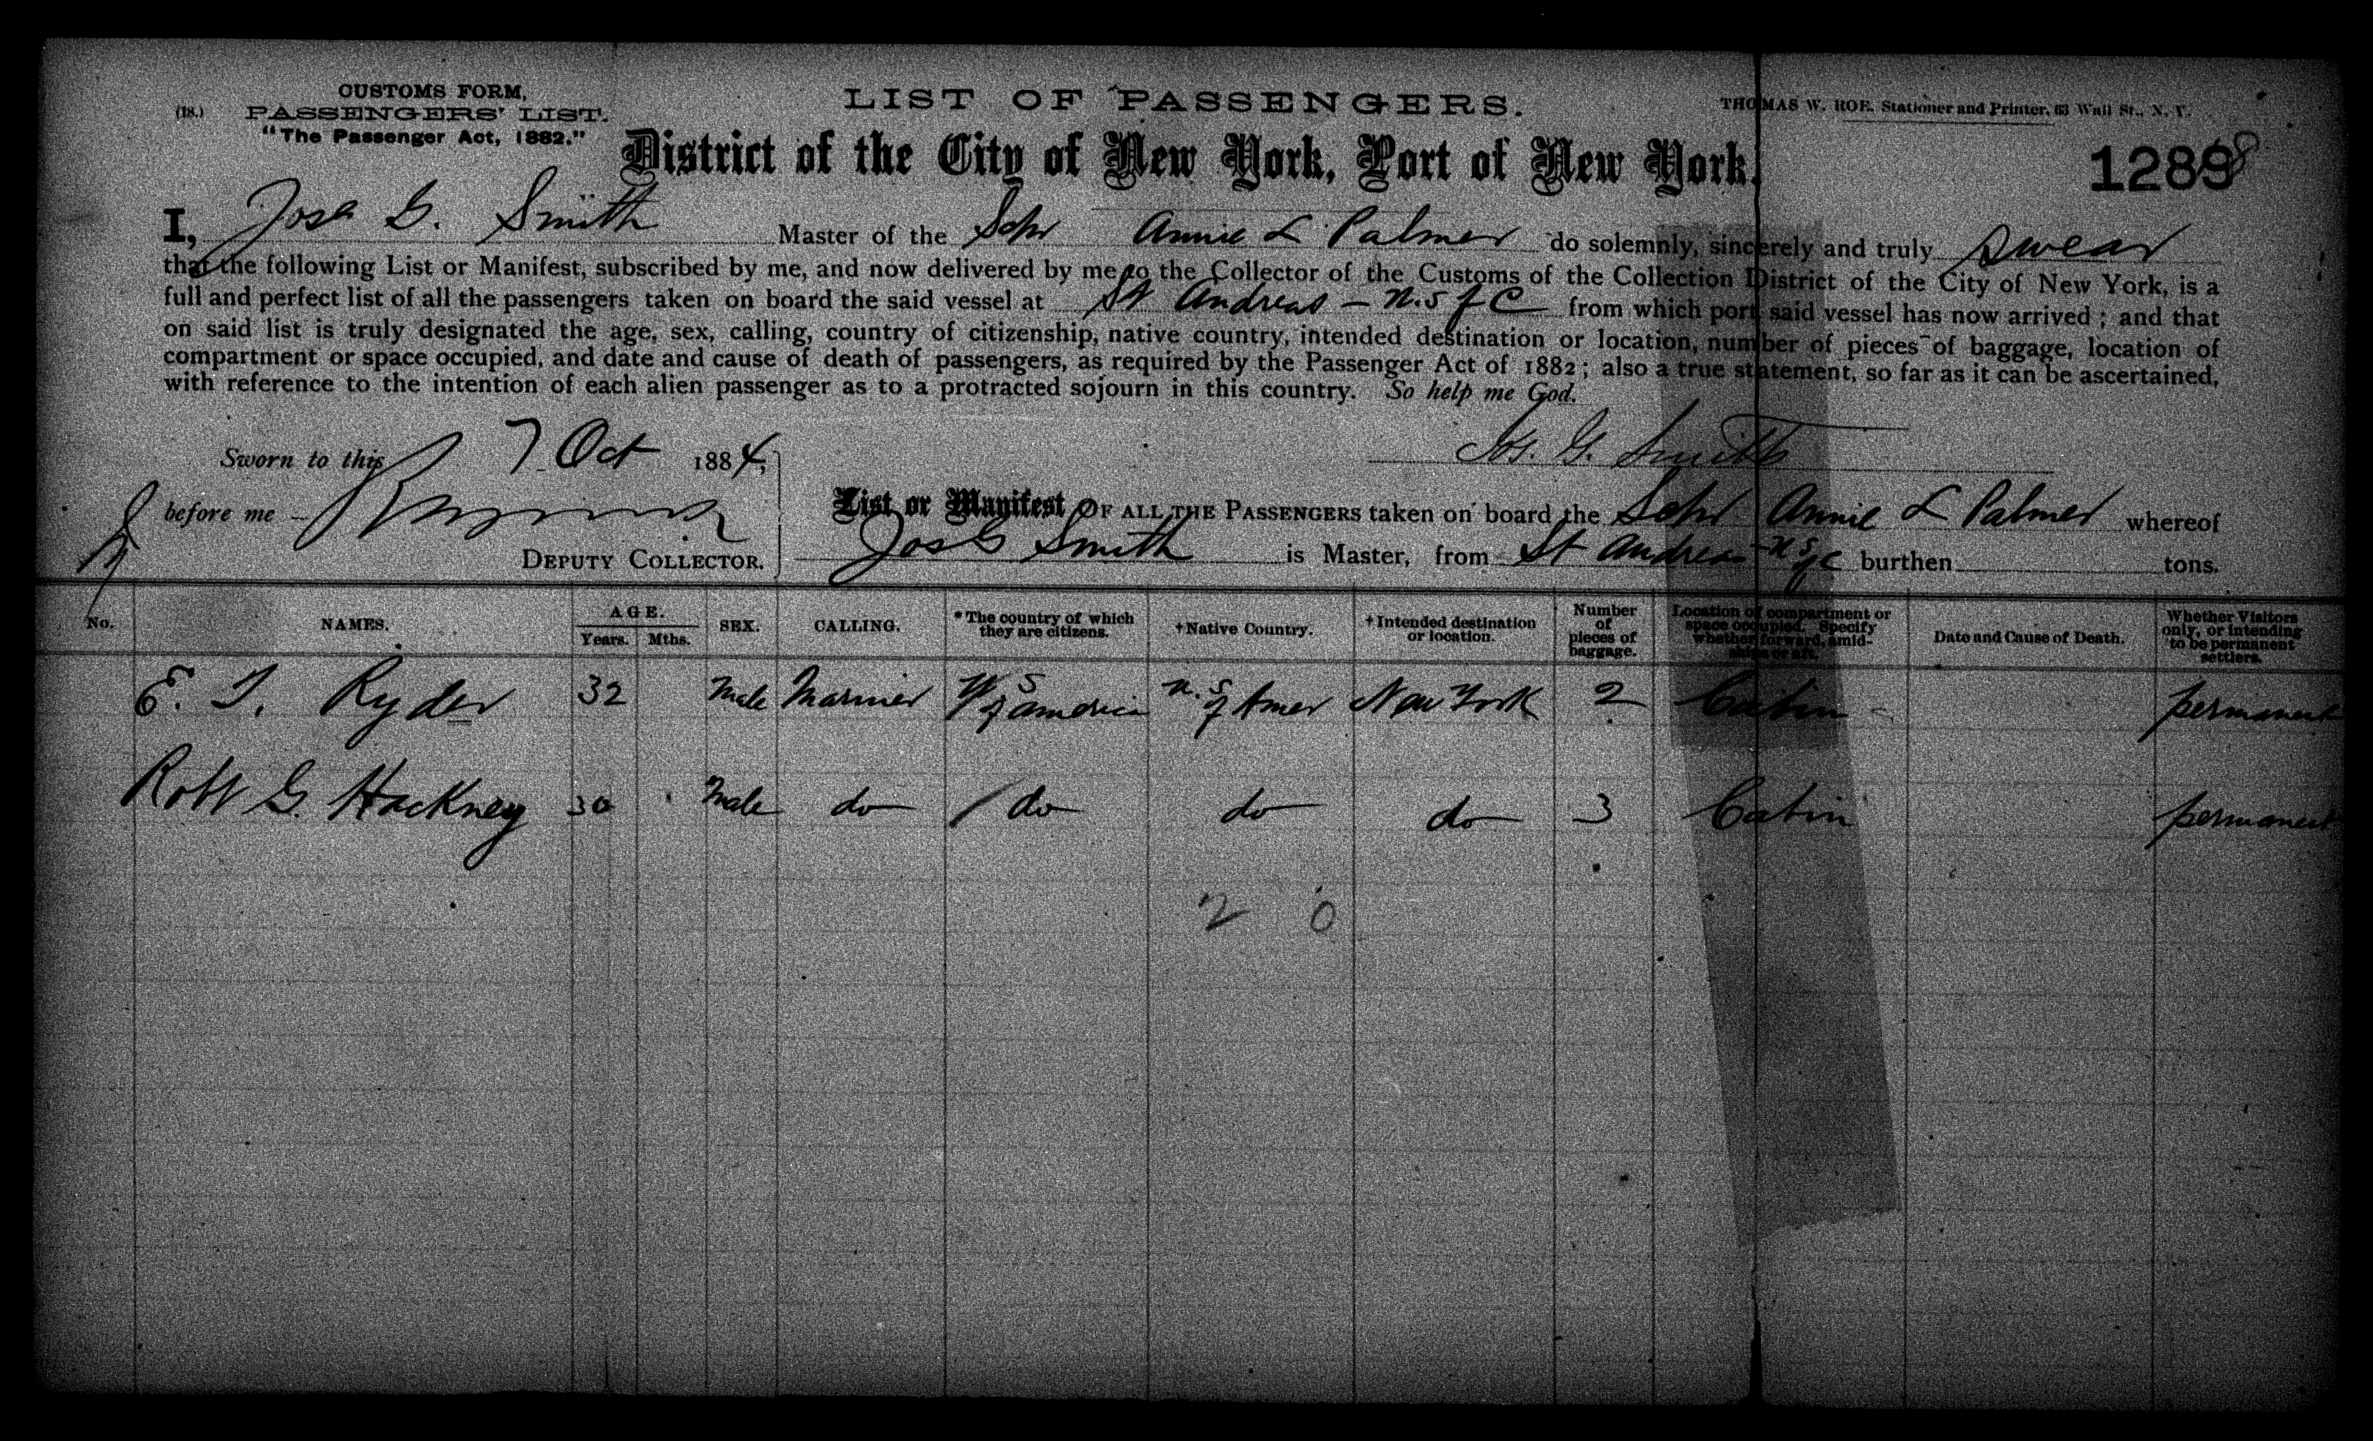 CUSTOMS FORM,
(18.) PASSENGERS' LIST.
"The Passenger Act, 1882."
LIST OF PASSENGERS.
THOMAS W. ROE, Stationer and Printer, 63 Wall St., N. Y.
District of the City of New York, Port of New York.
1289 8
I, Jos. G. Smith Master of the Schr Annie L Palmer do solemnly, sincerely and truly swear
that the following List or Manifest, subscribed by me, and now delivered by me to the Collector of the Customs of the Collection District of the City of New York, is a
full and perfect list of all the passengers taken on board the said vessel at St Andreas - U.S of C from which port said vessel has now arrived; and that
on said list is truly designated the age, sex, calling, country of citizenship, native country, intended destination or location, number of pieces of baggage, location of
compartment or space occupied, and date and cause of death of passengers, as required by the Passenger Act of 1882; also a true statement, so far as it can be ascertained,
with reference to the intention of each alien passenger as to a protracted sojourn in this country. So help me God.
Sworn to this 7 Oct 1884,
Jos. G. Smith
before me
DEPUTY COLLECTOR.
List or Manifest OF ALL THE PASSENGERS taken on board the Schr Annie L Palmer whereof
Jos G Smith is Master, from St Andreas U S of C burthen tons.
No. NAMES. AGE. Years. Mths. SEX. CALLING. *The country of which they are citizens. †Native Country. †Intended destination or location. Number of pieces of baggage. Location of compartment or space occupied. Specify whether forward, amidships or aft. Date and Cause of Death. Whether Visitors only, or intending to be permanent settlers.
E. T. Ryder 32 Male Mariner U S of America U. S of Amer New York 2 Cabin permanent
Robt G. Hackney 30 Male do do do do 3 Cabin permanent
2 0